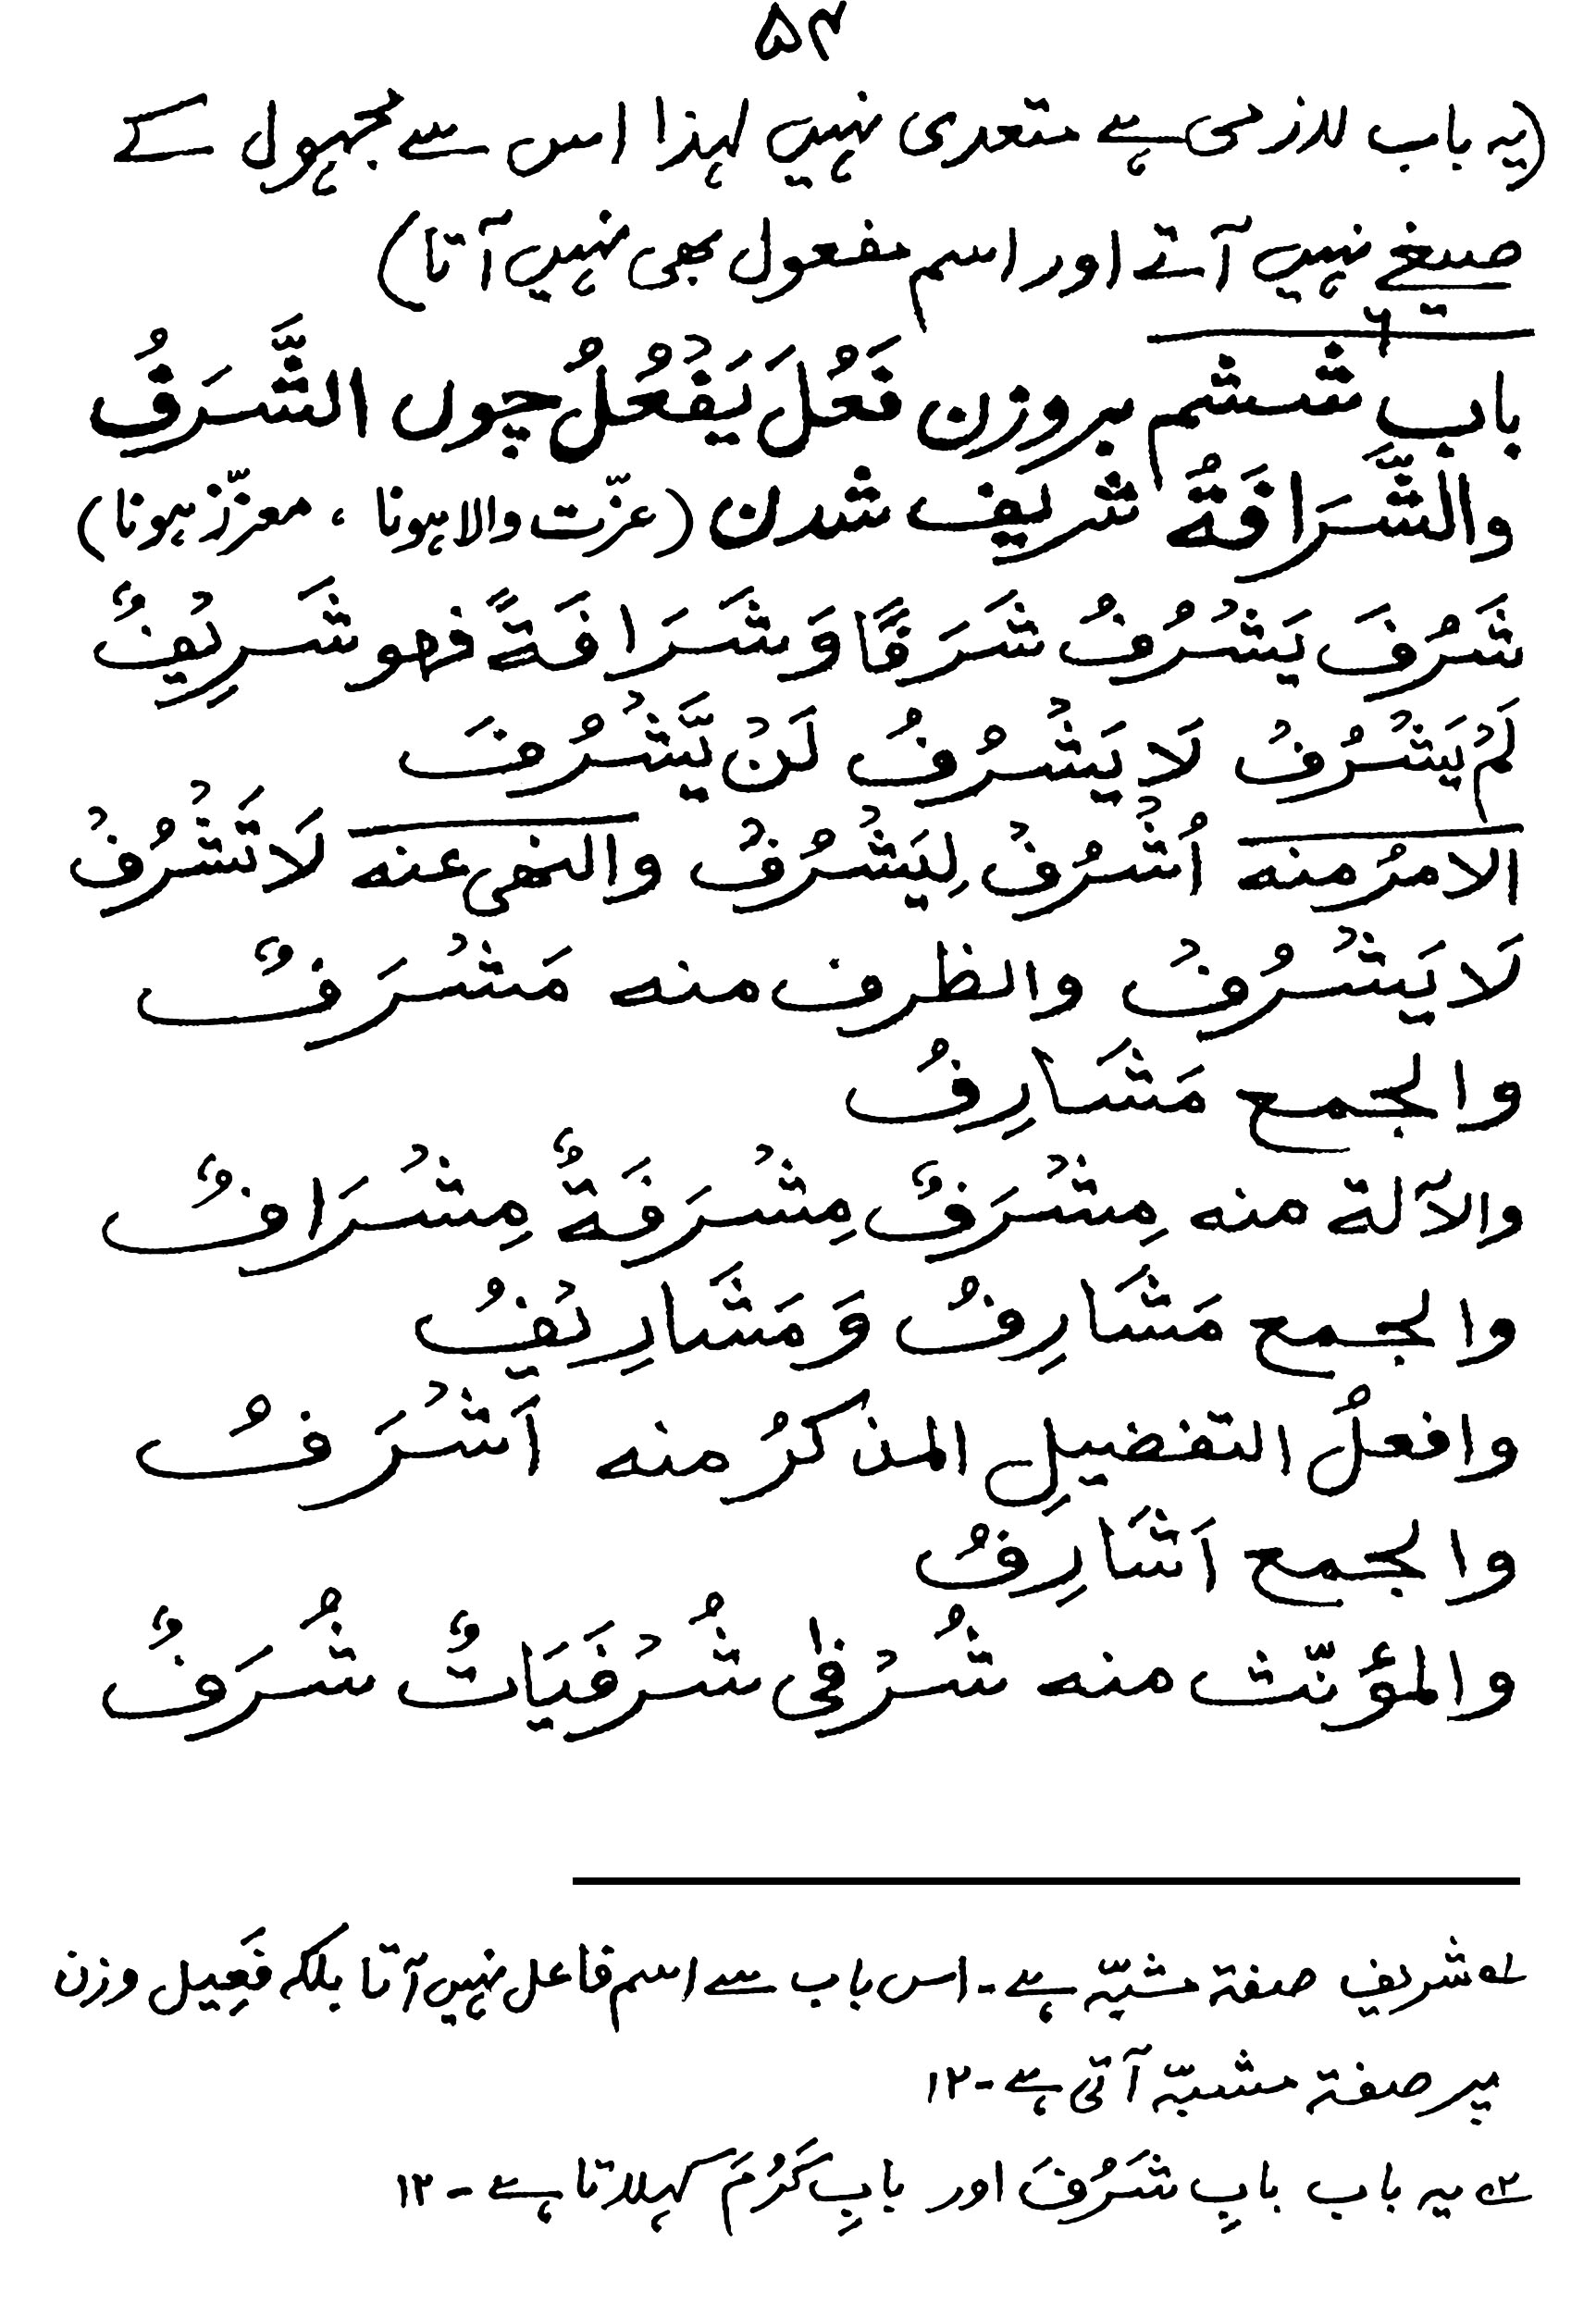 ۵۴
(یہ باب لازمی ہے متعدی نہیں لہذا اس سے مجہول کے
صیغے نہیں آتے اور اسم مفعول بھی نہیں آتا)
باب ششم بروزن فَعُلَ يَفْعُلُ چوں الشَّرَفُ
والشَّرَافَةُ شریف شدن (عزّت والا ہونا ، معزّز ہونا)
شَرُفَ يَشْرُفُ شَرَفًا وَ شَرَافَةً فهو شَرِيْفٌ
لَمْ يَشْرُفْ لَا يَشْرُفُ لَنْ يَّشْرُفَ
الامرُ منه اُشْرُفْ لِيَشْرُفْ والنهی عنه لَا تَشْرُفْ
لَا يَشْرُفْ والظرف منه مَشْرَفٌ
والجمع مَشَارِفُ
والآلة منه مِشْرَفٌ مِشْرَفَةٌ مِشْرَافٌ
والجمع مَشَارِفُ وَ مَشَارِيْفُ
وافعلُ التفضیلِ المذکرُ منه اَشْرَفُ
والجمع اَشَارِفُ
والمؤنّث منه شُرْفٰی شُرْفَيَاتٌ شُرَفٌ
لہ شریف صفۃ مشبّہ ہے۔ اس باب سے اسم فاعل نہیں آتا بلکہ فَعِیل وزن
پر صفۃ مشبّہ آتی ہے۔ ۱۲
۲ہ یہ باب بابِ شَرُفَ اور بابِ کَرُمَ کہلاتا ہے ۔ ۱۲